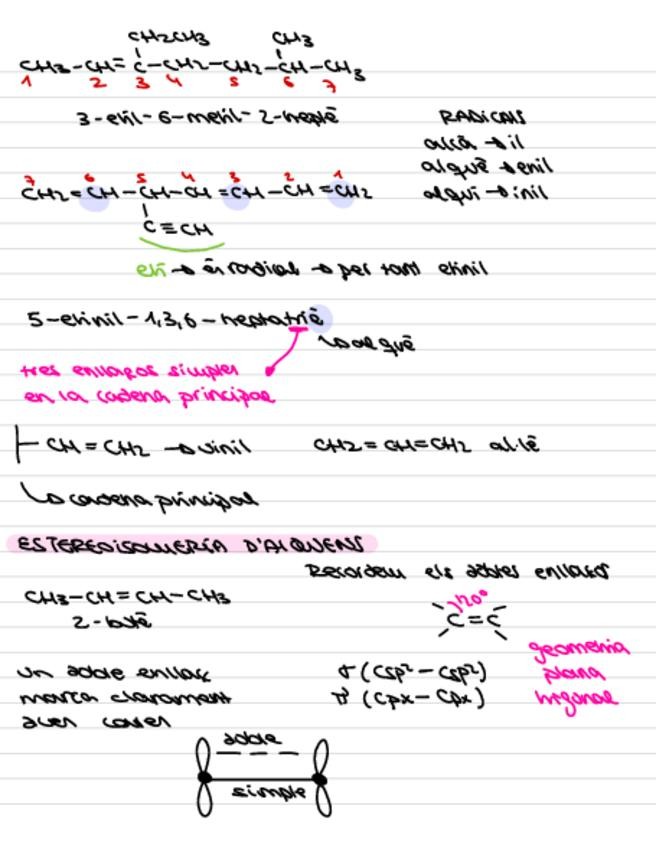 CH2CH3 CH3
CH3-CH=C-CH2-CH2-CH-CH3
1 2 3 4 5 6 7
3-etil-6-metil-2-heptè
RADICALS
alcà → il
alquè → enil
alquí → inil
7 6 5 4 3 2 1
CH2=CH-CH-CH=CH-CH=CH2
C≡CH
etí → és radical → per tant etinil
5-etinil-1,3,6-heptatriè
↳ alquè
tres enllaços simples
en la cadena principal
CH=CH2 → vinil
CH2=CH=CH2 al·lè
↳ cadena principal
ESTEREOISOMERÍA D'ALQUENS
Recordem els dobles enllaços
CH3-CH=CH-CH3
2-butè
120°
C=C
geometria
plana
trigonal
un doble enllaç
marca clarament
dues cares
σ (Csp²-Csp²)
π (Cpx-Cpx)
doble
simple